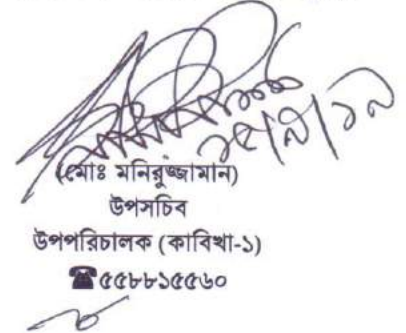 ১৫/৯/১৯
(মোঃ মনিরুজ্জামান)
উপসচিব
উপপরিচালক (কাবিখা-১)
☎৫৫৮৮১৫৫৬০